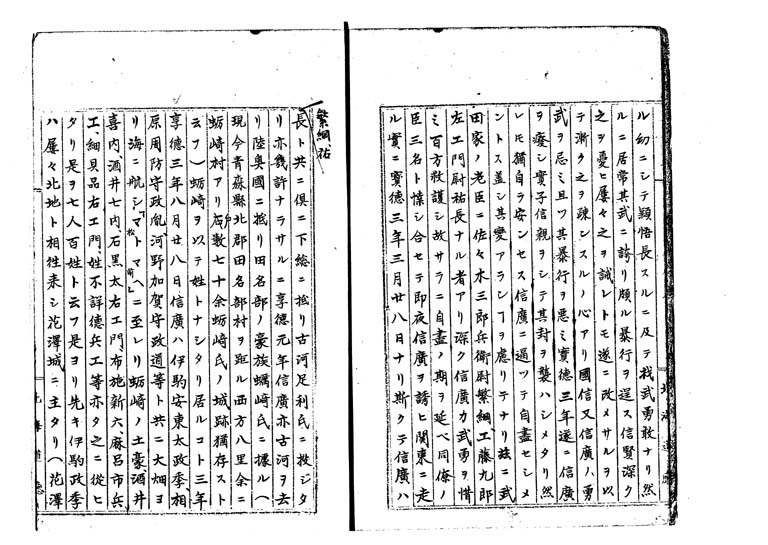 ル幼ニシテ頴悟長スルニ及テ技武勇敢ナリ然
ルニ居常其武ニ誇リ頗ル暴行ヲ逞ス信賢深ク
之ヲ憂ヒ屢々之ヲ誡レトモ遂ニ改メサルヲ以
テ漸ク之ヲ疎ンスルノ心アリ國信又信廣ノ勇
武ヲ忌ミ且ツ其暴行ヲ惡ミ寳德三年遂ニ信廣
ヲ癈シ實子信親ヲシテ其封ヲ襲ハシメタリ然
レモ獨自ラ安ンセス信廣ニ逼ツテ自盡セシメ
ントス盖シ其變アランヿヲ慮リテナリ玆ニ武
田家ノ老臣ニ佐々木三郎兵衛尉繁綱、工藤九郎
左エ門尉祐長ナル者アリ深ク信廣カ武勇ヲ惜
ミ百方救護シ故サラニ自盡ノ期ヲ延ベ同僚ノ
臣三名ト愫シ合セテ即夜信廣ヲ誘ヒ関東ニ走
ル實ニ寳德三年三月廿八日ナリ斯クテ信廣ハ
繁綱祐
長ト共ニ倶ニ下総ニ抵リ古河足利氏ニ投シタ
リ亦幾許ナラサルニ享德元年信廣亦古河ヲ去
リ陸奥國ニ抵リ田名部ノ豪族蠣崎氏ニ據ル(
現今青森縣北郡田名部村ヲ距ル西方八里余ニ
蛎崎村アリ戸数七十余蛎崎氏ノ城跡猶存スト
云フ)蛎崎ヲ以テ姓トナシタリ居ルコト三年
享德三年八月廿八日信廣ハ伊駒安東太政季、相
原周防守政胤、河野加賀守政道等ト共ニ大畑ヨ
リ海ニ航シ「マトマヘ」ニ至レリ蛎崎ノ土豪酒井
松前
喜内酒井七内、石黒太右エ門、布施新六、麻呂市兵
エ、細貝品右エ門、姓不詳德兵工等亦タ之ニ從ヒ
タリ是ヲ七人百姓ト云フ是ヨリ先キ伊駒政季
ハ屢々北地ト相徃来シ花澤城ニ主タリ(花澤